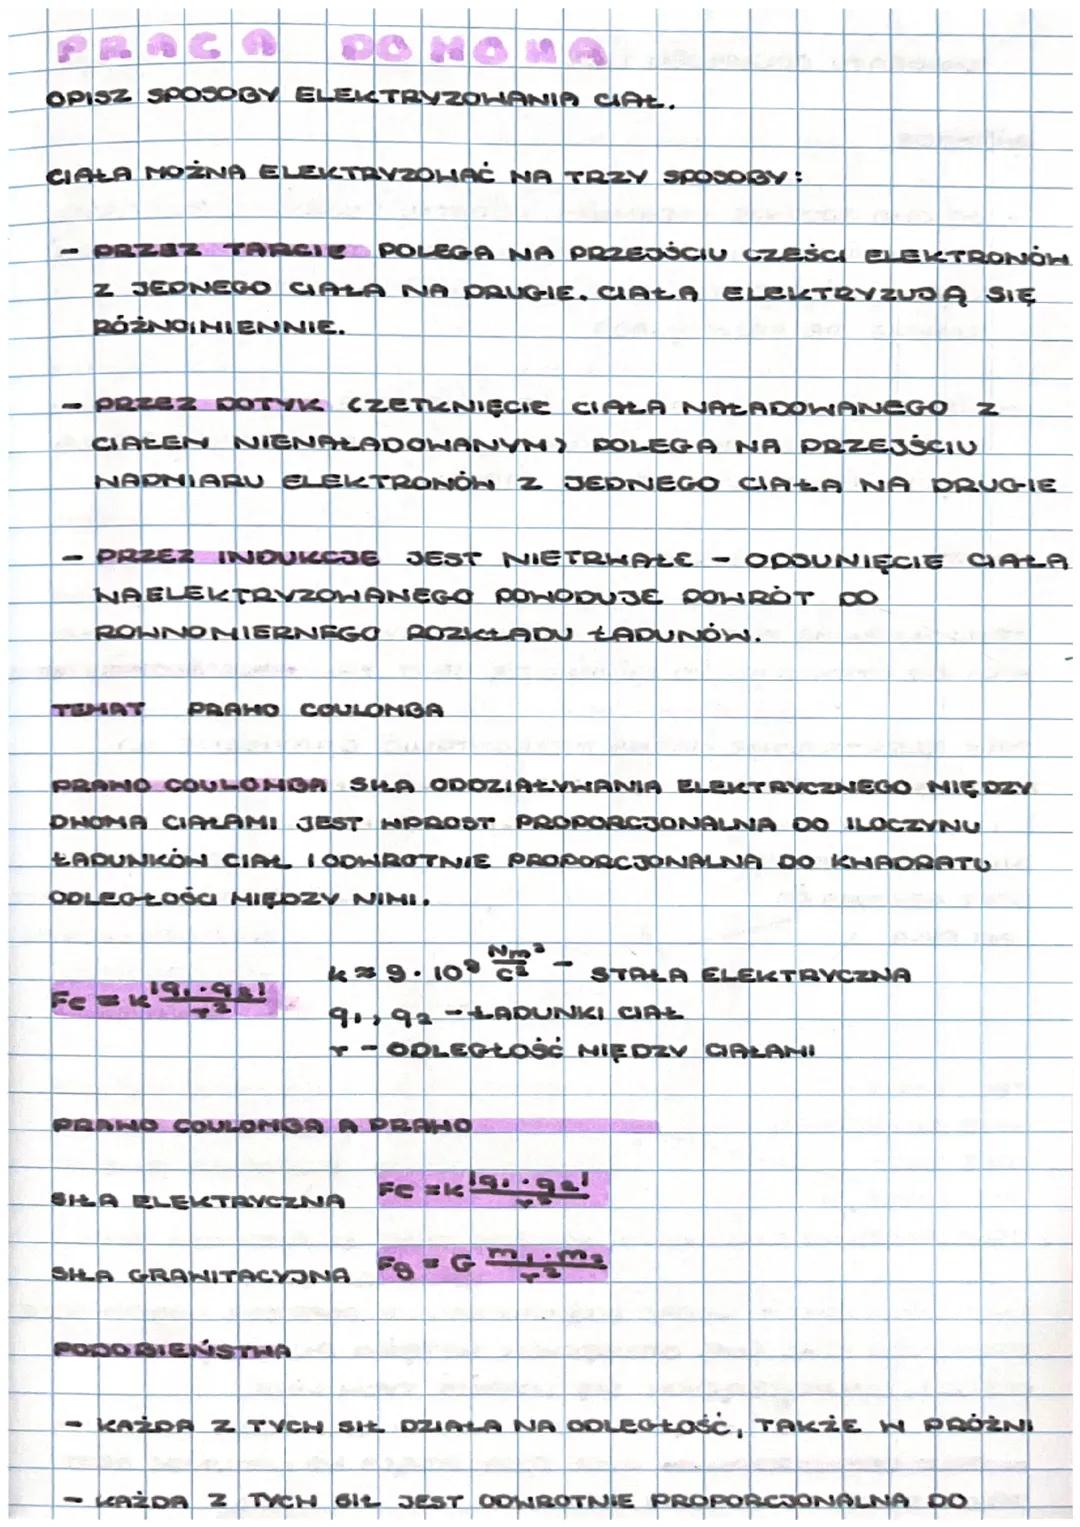 PRACA DOMOWA
OPISZ SPOSOBY ELEKTRYZOWANIA CIAŁ.
CIAŁA MOŻNA ELEKTRYZOWAĆ NA TRZY SPOSOBY:
- PRZEZ TARCIE POLEGA NA PRZEJŚCIU CZEŚCI ELEKTRONÓW
Z JEDNEGO CIAŁA NA DRUGIE. CIAŁA ELEKTRYZUJĄ SIĘ
RÓŻNOIMIENNIE.
- PRZEZ DOTYK (ZETKNIĘCIE CIAŁA NAŁADOWANEGO Z
CIAŁEM NIENAŁADOWANYM) POLEGA NA PRZEJŚCIU
NADMIARU ELEKTRONÓW Z JEDNEGO CIAŁA NA DRUGIE
- PRZEZ INDUKCJE JEST NIETRWAŁE - ODSUNIĘCIE CIAŁA
NAELEKTRYZOWANEGO POWODUJE POWRÓT DO
ROWNOMIERNEGO ROZKŁADU ŁADUNÓW.
TEMAT PRAWO COULOMBA
PRAWO COULOMBA SIŁA ODDZIAŁYWANIA ELEKTRYCZNEGO MIĘDZY
DWOMA CIAŁAMI JEST WPROST PROPORCJONALNA DO ILOCZYNU
ŁADUNKÓW CIAŁ I ODWROTNIE PROPORCJONALNA DO KWADRATU
ODLEGŁOŚCI MIĘDZY NIMI.
k ≈ 9 · 10⁹ Nm²/C² - STAŁA ELEKTRYCZNA
Fe = k |q₁ · q₂| / r²
q₁, q₂ - ŁADUNKI CIAŁ
r - ODLEGŁOŚĆ MIĘDZY CIAŁAMI
PRAWO COULOMBA A PRAWO
SIŁA ELEKTRYCZNA Fe = k |q₁ · q₂| / r²
SIŁA GRAWITACYJNA Fg = G m₁ · m₂ / r²
PODOBIEŃSTWA
- KAŻDA Z TYCH SIŁ DZIAŁA NA ODLEGŁOŚĆ, TAKŻE W PRÓŻNI
- KAŻDA Z TYCH SIŁ JEST ODWROTNIE PROPORCJONALNA DO